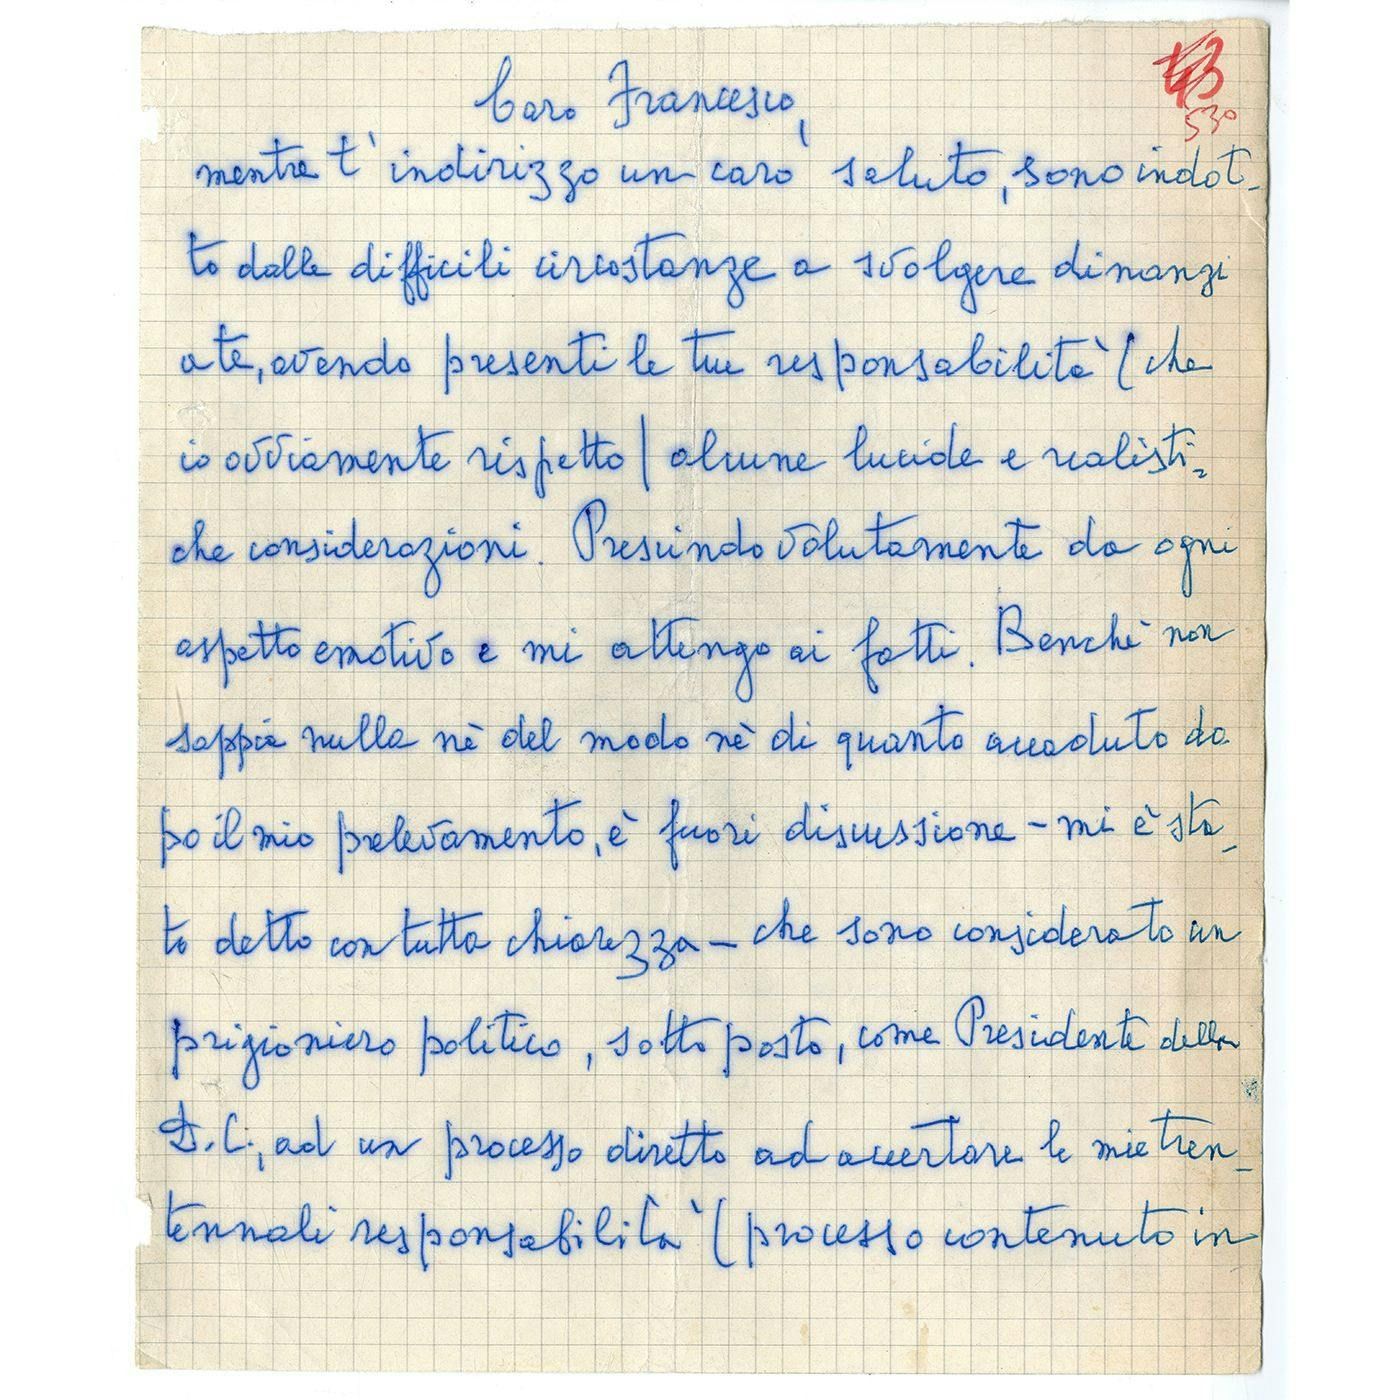 530
Caro Francesco,
mentre t'indirizzo un caro saluto, sono indot-
to dalle difficili circostanze a svolgere dinanzi
a te, avendo presenti le tue responsabilità (che
io ovviamente rispetto) alcune lucide e realisti-
che considerazioni. Prescindo volutamente da ogni
aspetto emotivo e mi attengo ai fatti. Benchè non
sappia nulla nè del modo nè di quanto accaduto do
po il mio prelevamento, è fuori discussione - mi è sta-
to detto con tutta chiarezza - che sono considerato un
prigioniero politico, sottoposto, come Presidente della
D.C., ad un processo diretto ad accertare le mie tren-
tennali responsabilità (processo contenuto in